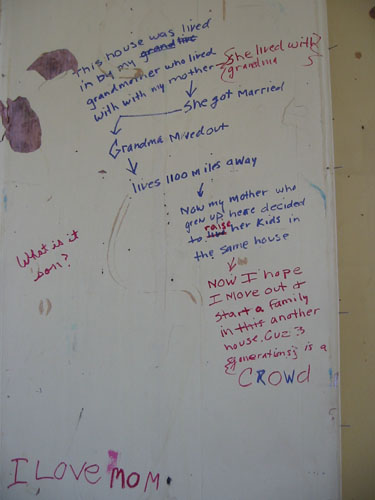 This house was lived
in by my grand live
grandmother who lived
with with my mother
{She lived with}
{grandma }
She got Married
Grandma Moved out
lives 1100 Miles away
Now my mother who
grew up here decided
to live raise her kids in
the same house
What is it
NOW I hope
I Move out &
start a family
in this another
house. Cuz 3
{generations} is a
CROWD
I LOVE MOM.